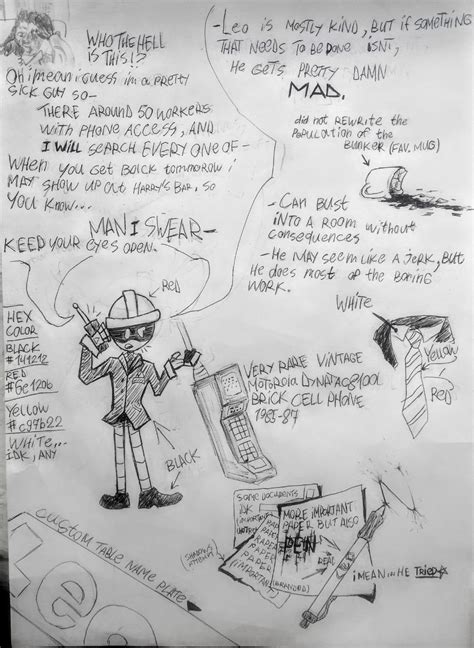 WHO THE HELL
IS THIS!?
Oh i mean i guess im a pretty
sick guy so-
THERE AROUND 50 WORKERS
WITH PHONE ACCESS, AND
I WILL SEARCH EVERY ONE OF-
When you get back tomorrow i
may show up at Harry's Bar, so
you know...
MAN I SWEAR-
KEEP YOUR EYES OPEN.
-Leo is mostly kind, but if something
that needs to be done isnt,
he gets pretty damn
MAD.
did not rewrite the
population of the
bunker (fav. mug)
-Can bust
into a room without
consequences
-He may seem like a jerk, but
he does most of the boring
work.
RED
HEX
COLOR
BLACK
#141212
RED
#5e120b
YELLOW
#c97b22
WHITE...
IDK, ANY
BLACK
VERY RARE VINTAGE
MOTOROLA DYNATAC 8100L
BRICK CELL PHONE
1985-87
WHITE
YELLOW
RED
SOME DOCUMENTS
IDK
(IMPORTANT)
MORE IMPORTANT
PAPER BUT ALSO
PAPER
PAPER
PAPER
(IMPORTANT)
REAL
I MEAN HE TRIED
CUSTOM TABLE NAME PLATE
Leo